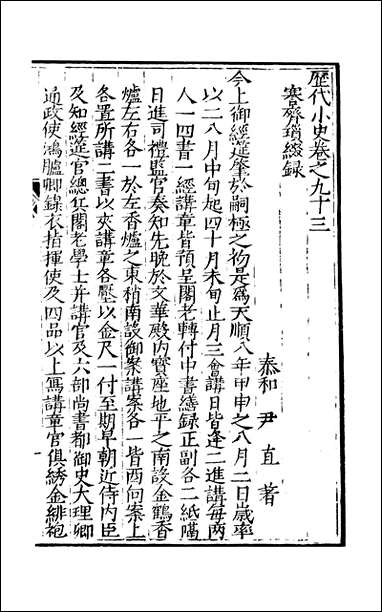 歷代小史卷之九十三
謇齋瑣綴錄
泰和尹直著
今上御經筵肇於嗣極之初是爲天順八年甲申之八月二日歲率
以二八月中旬起四十月末旬止月三會講日皆逢二進講每兩
人一四書一經講章皆預呈閣老轉付中書繕錄正副各二紙隔
日進司禮監官奏知先晚於文華殿內寶座地平之南設金鶴香
爐左右各一於左香爐之東稍南設御案講案各一皆西向案上
各置所講二書以夾講章各壓以金尺一付至期早朝近侍內臣
及知經筵官總兵閣老學士并講官及六部尚書都御史大理卿
通政使鴻臚卿錦衣指揮使及四品以上寫講章官俱綉金緋袍